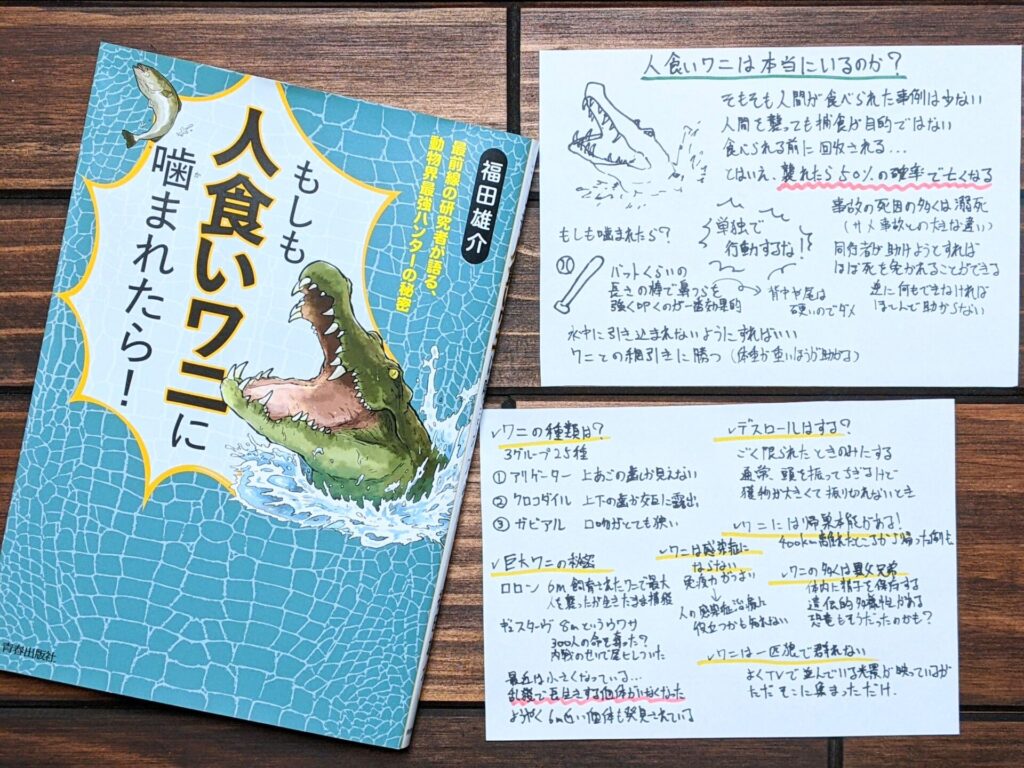 もしも
人食いワニに
噛まれたら！
か
最前線の研究者が語る、
動物界最強ハンターの秘密
福田雄介
青春出版社
人食いワニは本当にいるのか？
そもそも人間が食べられた事例は少ない
人間を襲っても捕食が目的ではない
食べられる前に回収される…
とはいえ、襲れたら50%の確率で亡くなる
事故の死因の多くは溺死
(サメ事故との大きな違い)
同行者が助けようとすれば
ほぼ死を免れることができる
逆に何もできなければ
ほとんど助からない
もしも噛まれたら？
単独で
行動するな！
バットくらいの
長さの棒で鼻っらを
強く叩くのが一番効果的
背中や尾は
硬いのでダメ
水中に引き込まれないようにすればいい
ワニとの綱引きに勝つ (体重が重いほうが助かる)
✓ワニの種類は？
3グループ25種
① アリゲーター 上あごの歯が見えない
② クロコダイル 上下の歯が交互に露出
③ ガビアル 口吻がとても狭い
✓巨大ワニの秘密
ロロン 6m 飼育されたワニで最大
人を襲ったが生きたまま捕獲
ギュスターヴ 8mというウワサ
300人の命を奪った？
内戦のせいで
最近は小さくなっている…
乱獲で長生きする個体がいなくなった
ようやく6m近い個体も発見されている
✓ワニは感染症に
ならない
免疫力がつよい
↓
人の感染症治療に
役立つかも知れない
✓デスロールはする？
ごく限られたときのみにする
通常、頭を振ってちぎるけど
獲物が大きくて振り切れないとき
✓ワニには帰巣本能がある！
400km離れたところから帰った例も
✓ワニの多くは異父兄弟
体内に精子を保存する
遺伝的多様性がある
恐竜もそうだったのかも？
✓ワニは一匹狼で群れない
よくTVで並んでいる光景が映っているが
ただそこに集まっただけ.